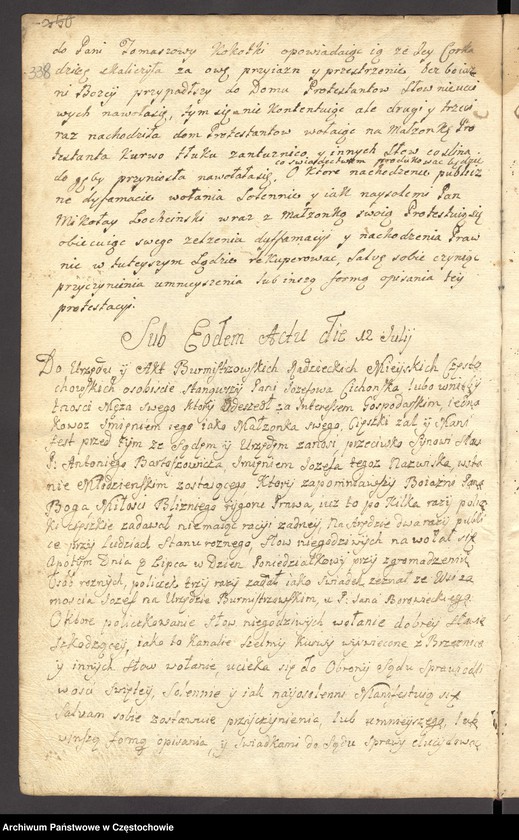 do Pani Tomaszowy Kokotki opowiadaiąc ią ze Jey Corka
338 dziey skaliczyła za owę przyiazn y przestrzenie bez boiaz
ni Bozey przypadłszy do Domu Protestantow Słow nieucci
wych nawołaią, tym się nie Kontentuiąc ale drugi y trzeci
raz nachodziła dom Protestantow wołaiąc na Małzonkę Pro
testanta Kurwo tłuku zantuznico, y innych słow co slina
co swiadectwem produkować będzie
do gęby przyniosła nawołała się. O ktore nachodzenie publicz
ne dyffamacie wołania Solennie y iak naysolenni Pan
Mikołay Lochcinski wraz z małzonką swoią Protestuią się
obiecuiąc swego zelzenia dyffamacyi y nachodzenia Praw
nie w tuteyszym Sądzie rekuperować, Salvę sobie czyniąc
przyczynienia umnieyszenia lub inszą formą opisania tey
protestacyi.
Sub Eodem Actu die 12 Julij
Do Urzędu ÿ Akt Burmistrzowskich Radzieckich Mieyskich Często
chowskich osobiscie stanąwszy Pani Jozefowa Cichonska lubo w niebÿ
tnosci Męza swego ktory odeszedł za Interessem Gospodarskim, iedna
kowoz Imieniem iego iako Małzonka swego, Cięszki zal ÿ Mani
fest przed tym ze Sądem ÿ Urzędem zanosi przeciwko Synowi Sław
P. Antoniego Bartoszowicza, Imieniem Jozefa tegoz Nazwiska, w sta
nie Młodzienskim zostaiącego Ktorÿ zapomniawszÿ Boiazni Pana
Boga Miłosci Blizniego rÿgoru Prawa, iuz to po Kilka razÿ policz
ki cięszkie zadawał niemaiąc racÿi zadneÿ Na Urzędzie dwa razÿ publi
ce przÿ Ludziach Stanu roznego, Słow niegodziwÿch na wołał się
A potÿm Dnia 9 Lipca w Dzien Poniedziałkowÿ przÿ zgromadzeniu
Osob roznych, policzek trzÿ razÿ zadał iako Swiadek zeznał ze
moscia Jozef na Urzędzie Burmistrzowskim, u P. Jana Borowieckiego
O ktore policzkowanie Słow niegodziwych wołanie dobreÿ Sławie
szkodząceÿ, iako to Kanalie Szelmy Kurwy wyswiecone z Brzeznice
ÿ innÿch słow wołanie, ucieka się do Obronÿ Sądu Sprawiedli
wosci swięteÿ, Solennie ÿ iak nayosolenni Manifestuią się
Salvam sobie zostawuie przÿczÿnienia, lub umnieÿszenia, lub
w inszą formę opisania, ÿ swiadkami do Sądu Sprawÿ elucidować
Archiwum Państwowe w Częstochowie